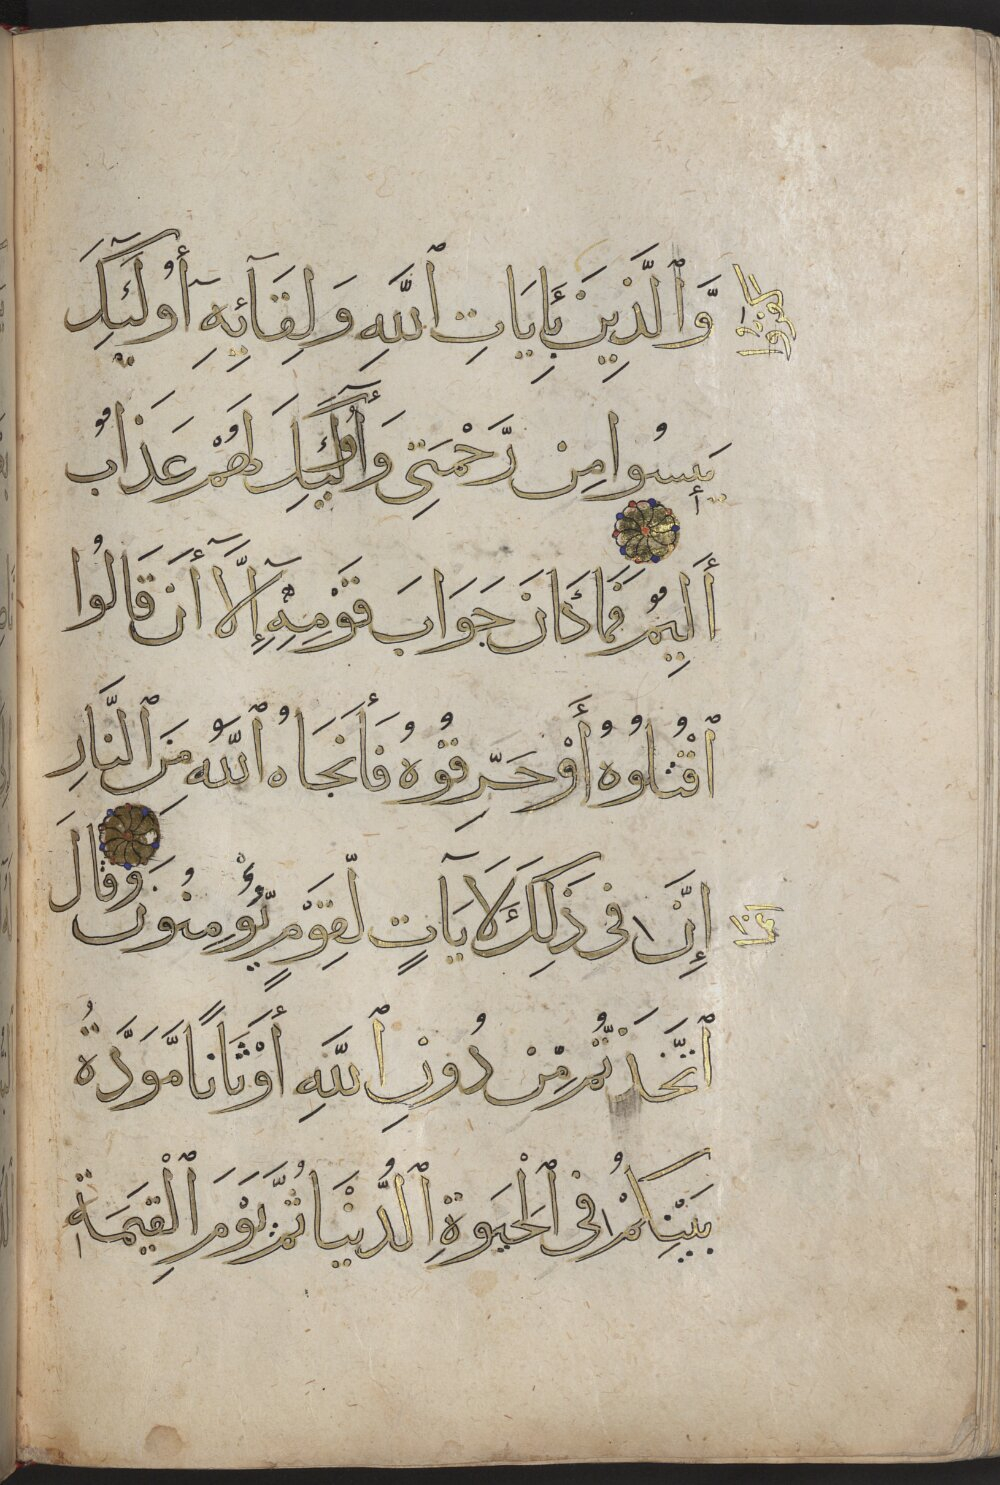 وَّٱلَّذِينَ بِـَٔايَاتِ ٱللَّهِ وَلِقَآئِهِۦٓ أُوْلَٰٓئِكَ
كفروا
يَئِسُوا مِن رَّحْمَتِى وَأُوْلَٰٓئِكَ لَهُمْ عَذَابٌ
أَلِيمٌ فَمَا كَانَ جَوَابَ قَوْمِهِۦٓ إِلَّآ أَن قَالُوا
ٱقْتُلُوهُ أَوْ حَرِّقُوهُ فَأَنجَاهُ ٱللَّهُ مِنَ ٱلنَّارِ
إِنَّ فِى ذَٰلِكَ لَآيَاتٍ لِّقَوْمٍ يُؤْمِنُونَ وَقَالَ
انما
ٱتَّخَذْتُم مِّن دُونِ ٱللَّهِ أَوْثَانًا مَّوَدَّةَ
بَيْنِكُمْ فِى ٱلْحَيَوٰةِ ٱلدُّنْيَا ثُمَّ يَوْمَ ٱلْقِيَٰمَةِ